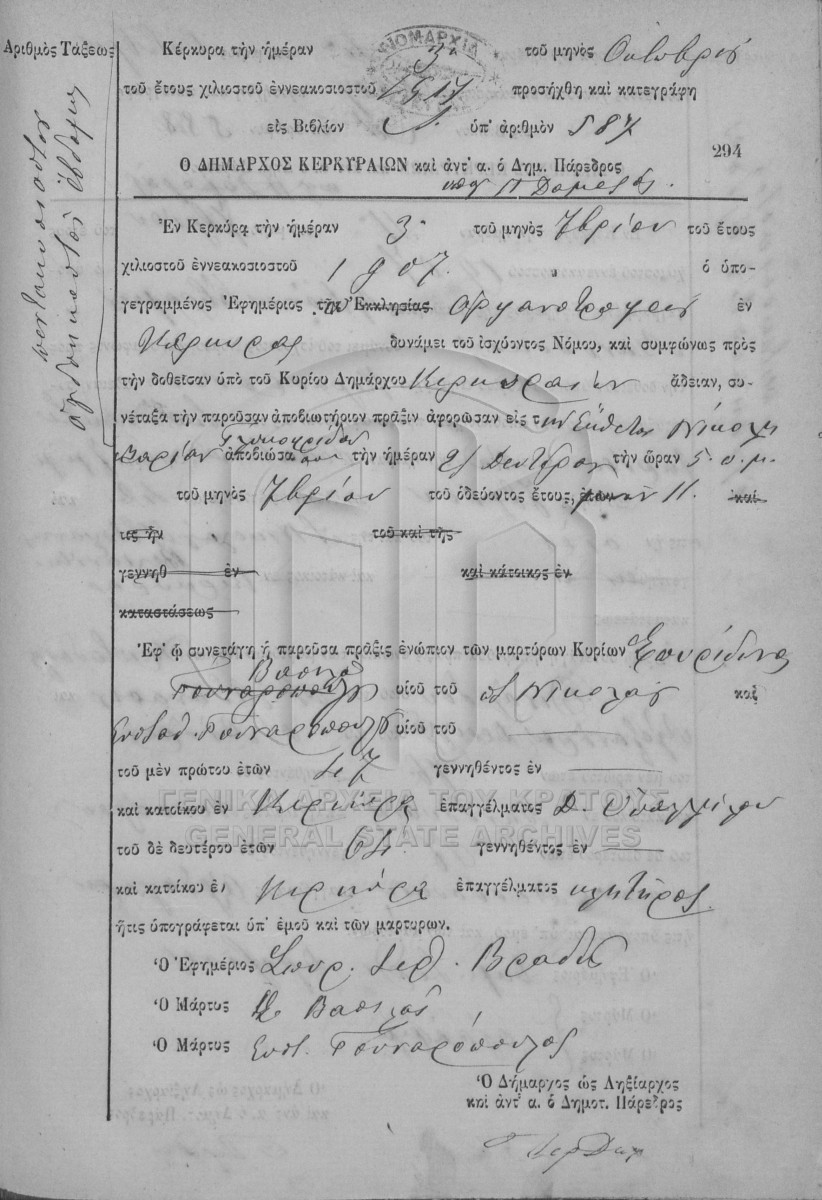 Ἀριθμὸς Τάξεως
πεντακοσιοστὸν
ὀγδοηκοστὸν ἕβδομον
Κέρκυρα τὴν ἡμέραν 3 τοῦ μηνὸς
τοῦ ἔτους χιλιοστοῦ ἐννεακοσιοστοῦ προσήχθη καὶ κατεγράφη
εἰς Βιβλίον ὑπ' ἀριθμὸν 587
294
Ο ΔΗΜΑΡΧΟΣ ΚΕΡΚΥΡΑΙΩΝ καὶ ἀντ' α. ὁ Δημ. Πάρεδρος
Ἐν Κερκύρᾳ τὴν ἡμέραν 3 τοῦ μηνὸς 7βρίου τοῦ ἔτους
χιλιοστοῦ ἐννεακοσιοστοῦ 1907. ὁ ὑπο-
γεγραμμένος Ἐφημέριος τῆς Ἐκκλησίας Ὀρφανοτροφείου ἐν
Κερκύρας δυνάμει τοῦ ἰσχύοντος Νόμου, καὶ συμφώνως πρὸς
τὴν δοθεῖσαν ὑπὸ τοῦ Κυρίου Δημάρχου Κερκυραίων ἄδειαν, συ-
νέταξα τὴν παροῦσαν ἀποβιωτήριον πρᾶξιν ἀφορῶσαν εἰς τὴν Ἔκθετον
ἀποβιώσα τὴν ἡμέραν Δευτέραν τὴν ὥραν 5. π.μ.
τοῦ μηνὸς 7βρίου τοῦ ὁδεύοντος ἔτους, ἐτῶν 11. καὶ
τις ἦν τοῦ καὶ τῆς
γεννηθ ἐν καὶ κάτοικος ἐν
καταστάσεως
Ἐφ' ᾧ συνετάγη ἡ παροῦσα πρᾶξις ἐνώπιον τῶν μαρτύρων Κυρίων Σπυρίδωνα
Βασιλᾶ
Γουναρόπουλου υἱοῦ τοῦ Νικολάου καὶ
Ευσταθ. Γουναροπούλου υἱοῦ τοῦ
τοῦ μὲν πρώτου ἐτῶν 47 γεννηθέντος ἐν
καὶ κατοίκου ἐν Κερκύρᾳ ἐπαγγέλματος Δ. Ὑπαλλήλου
ΓΕΝΙΚΑ ΑΡΧΕΙΑ ΤΟΥ ΚΡΑΤΟΥΣ
GENERAL STATE ARCHIVES
τοῦ δὲ δευτέρου ἐτῶν 64 γεννηθέντος ἐν
καὶ κατοίκου ἐν Κερκύρᾳ ἐπαγγέλματος κλητῆρος
ἥτις ὑπογράφεται ὑπ' ἐμοῦ καὶ τῶν μαρτυρων.
Ὁ Ἐφημέριος Σπυρ.
Ὁ Μάρτυς Βασιλᾶς
Ὁ Μάρτυς Ευστ. Γουναρόπουλος
Ὁ Δήμαρχος ὡς Ληξίαρχος
καὶ ἀντ' α. ὁ Δημοτ. Πάρεδρος